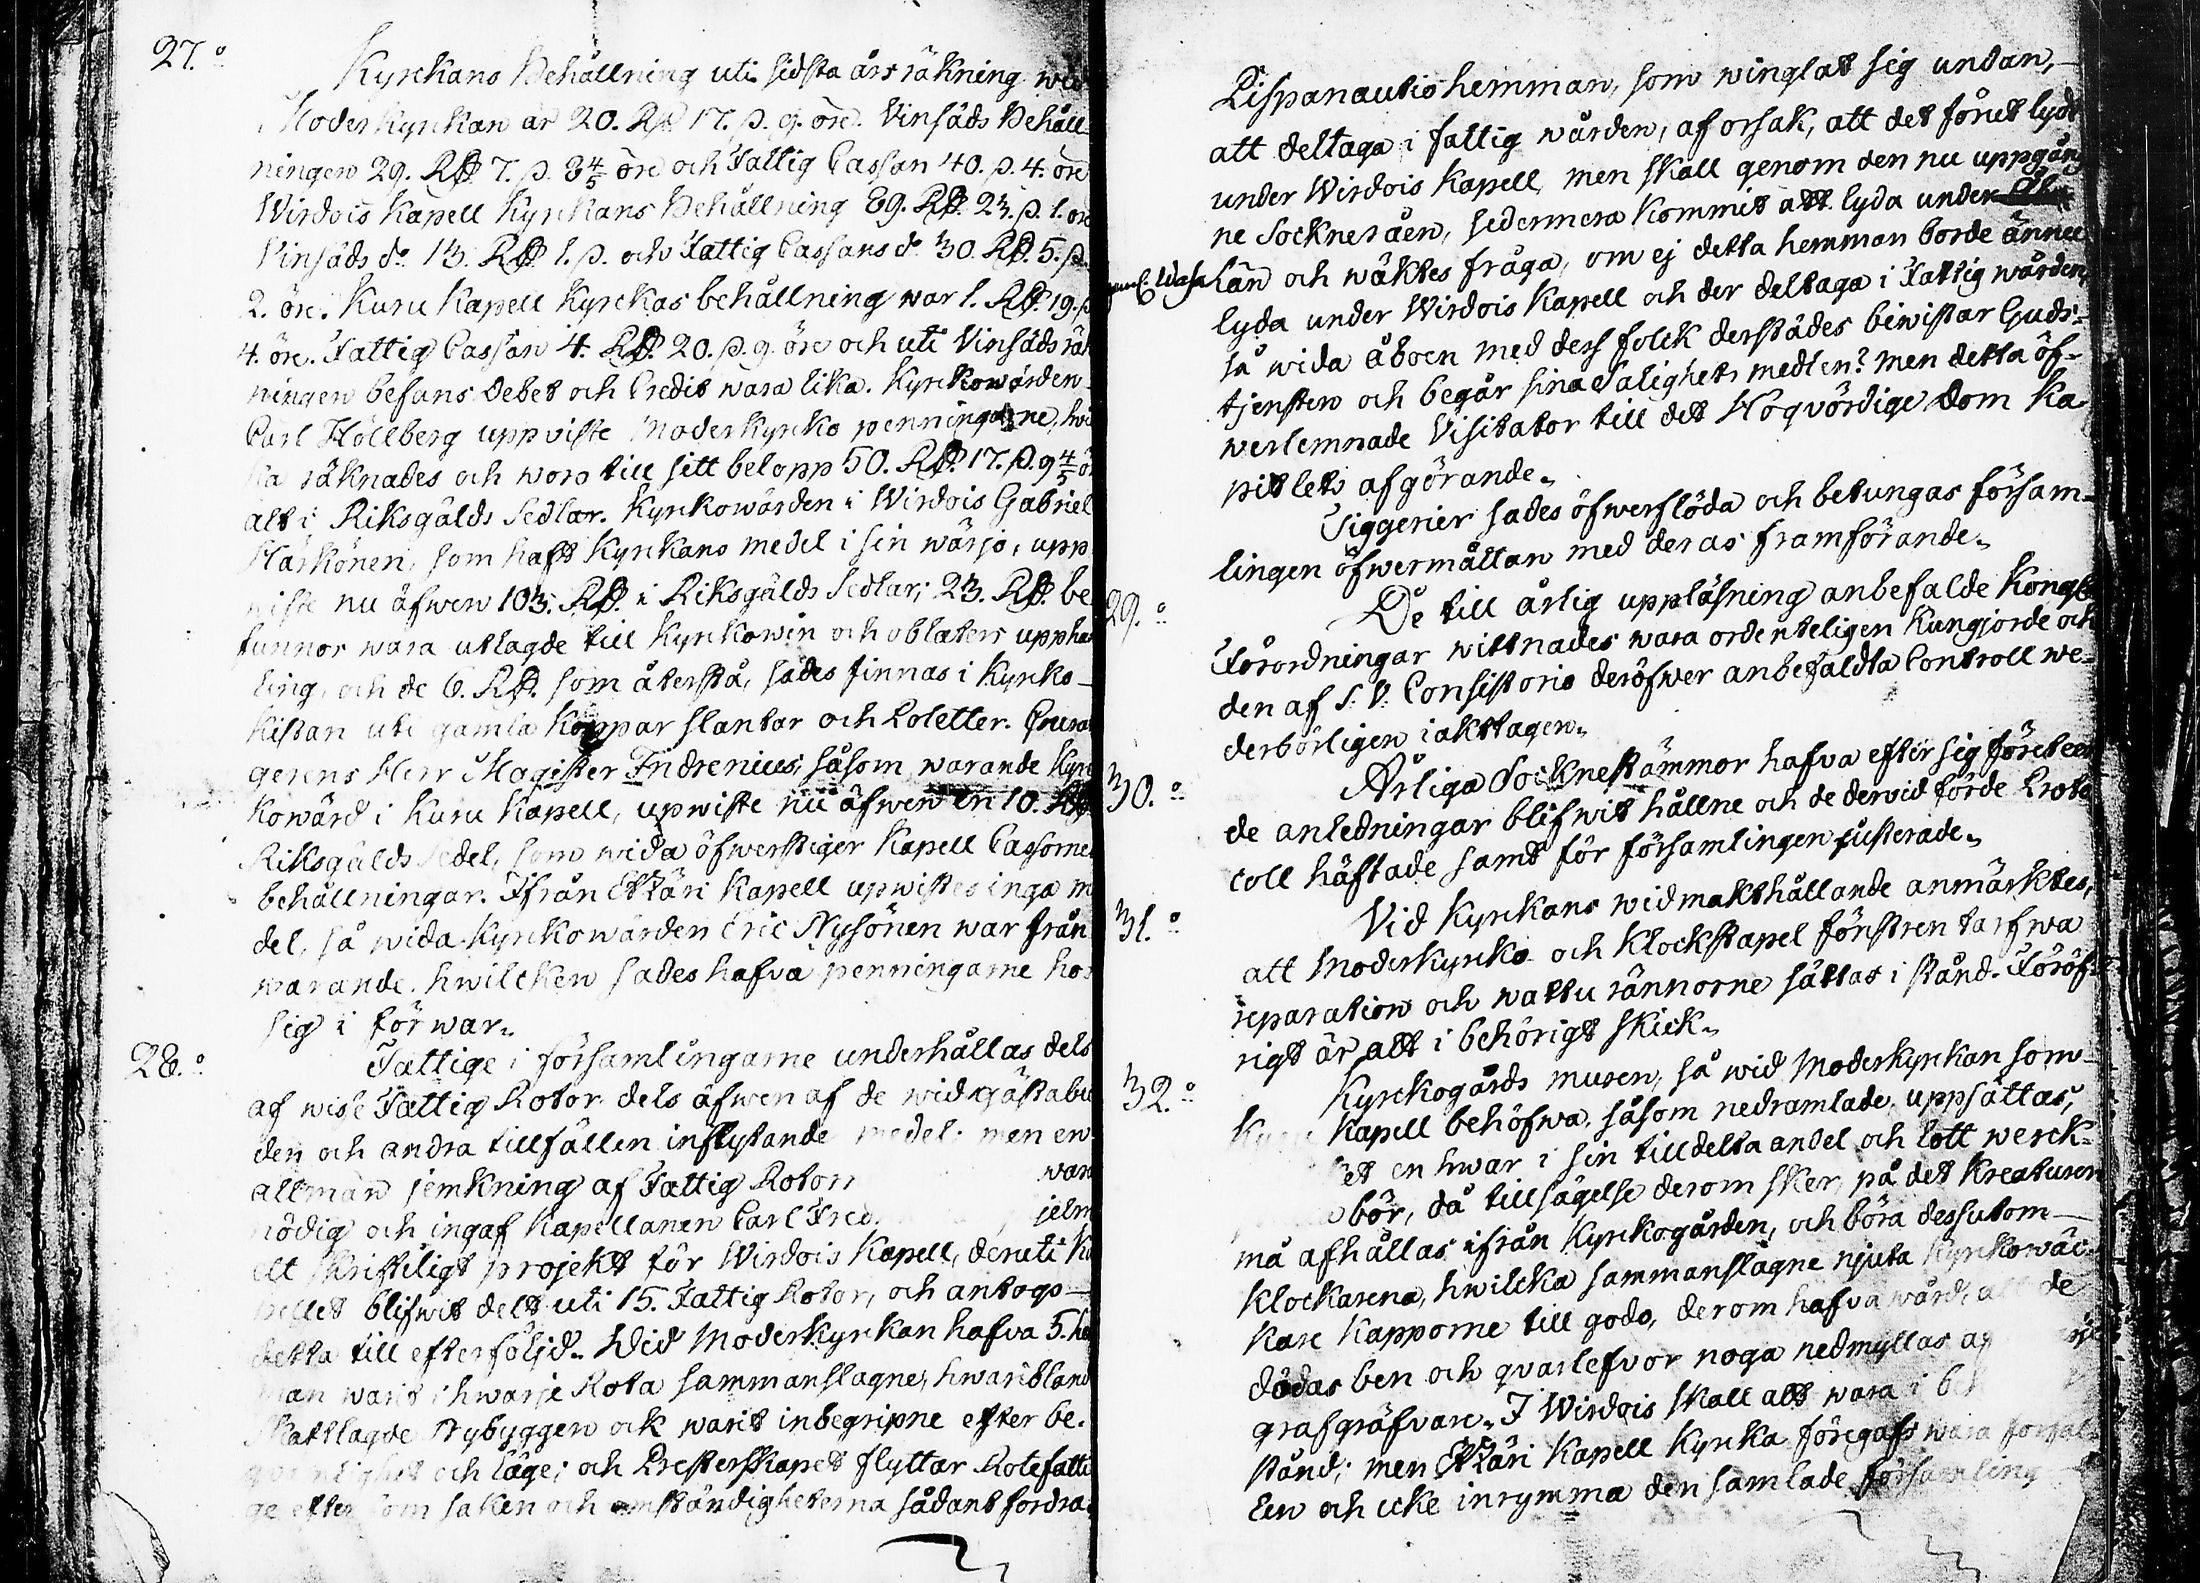 27.º
Kyrckans Behållning uti sidsta årsräkning wid
Moderkyrkan är 20. Rd. 17. ß. 9. öre. Vinsäds Behåll
ningen 29. Rd. 7. ß. 8 4/5 öre och Fattig Cassan 40. ß. 4. öre
Wirdois Kapell Kyrkans Behållning 89. Rd. 23. ß. 1. öre
Vinsäds dº 13. Rd. 1. ß. och Fattig Cassans dº 30. Rd. 5. ß.
2. öre. Kuru Kapell Kyrckas behållning war 1. Rd. 19. ß
4. öre. Fattig Cassan 4. Rd. 20. ß. 9. öre och uti Vinsäds räk
ningen befans Debet och Credit wara lika. Kyrckowärden
Carl Hällberg uppviste Moderkyrko penningarne, hwi
ka räknades och woro till sitt belopp 50. Rd. 17. ß. 9 4/5 ör
alt i Riksgälds Sedlar. Kyrkowärden i Wirdois Gabriel
Härkönen, som haft Kyrkans medel i sin wärjo, upp
niste nu äfwen 103. Rd. i Riksgälds Sedlar; 23. Rd. be
funnor wara utlagde till Kyrkowin och oblaters upphan
ling, och de 6. Rd. som återstå, sades finnas i Kyrko
kistan uti gamla Koppar slantar och Poletter.
gerens Herr Magister Indrenius, såsom warande Kyrc
kowärd i Kuru Kapell, upwiste nu äfwen en 10. Rd
Riksgälds Sedel, som wida öfwerstiger Kapell Cassornes
behållningar. Ifrån Etzäri Kapell upwistes inga m
del, så wida Kyrkowärden Eric Nysönen war från
warande, hwilcken sades hafva penningarne hos
sig i förwar.
28.º
Fattige i församlingarne underhållas dels
af wisse Fattig Rotor dels äfwen af de wid gästabu
den och andra tillfällen inflytande medel; men en
allmän jemkning af Fattig Rotorn war
nödig och ingaf Kapellanen Carl Fred. jelm
ett skriftiligt projekt för Wirdois Kapell, deruti Ka
pellet blifwit delt uti 15. Fattig Rotor, och antogs
detta till efterföljd. Wid Moderkyrkan hafva 5. he
man warit i hwarje Rota sammanslagne, hwaribland
Skattlagde Nybyggen ock warit inbegripne efter be-
qvämlighet och läge; och Presterskapet flyttar Rotefatti
ge efter som saken och omständigheterna sådant fordra
Lispanautio hemman, som winglat sig undan,
att deltaga i fattig wården, af orsak, att det förut lydt
under Wirdois Kapell, men skall genom den nu uppgång
ne Sockneråen, sedermera kommit att lyda under
Wasa Län och wäktes fråga, om ej detta hemman borde ännu
lyda under Wirdois Kapell och der deltaga i Fattig wården,
så wida åboen med dess folck derstädes biwistar Guds-
tjensten och begår sina Salighets medlen? men detta öf-
werlemnade Visitator till det Högvördige Dom Ka-
pitlets afgörande.
Tiggerier sades öfwerflöda och betungas försam-
lingen öfwermåttan med deras framförande.
29.º
De till årlig uppläsning anbefalde Kongl
Förordningar wittnades wara ordenteligen kungjorde och
den af S. V. Consistorio deröfwer anbefaldta Controll we-
derbörligen iakttagen.
30.º
Årliga Socknestämmor hafva efter sig företeen
de anledningar blifwit hållne och de dervid förde Proto
coll häftade samt för församlingen justerade.
31.º
Vid Kyrkans widmakthållande anmärktes,
att Moderkyrko och Klockstapel fönstren tarfwa
reparation och wattu rännorne sättas i stånd. Föröf-
rigt är alt i behörigt skick.
32.º
Kyrckogårds muren, så wid Moderkyrkan som
Kuru Kapell behöfwa, såsom nedramlade, uppsättas,
et en hwar i sin tilldelta andel och lott werck-
bör, då tillsägelse derom sker, på det Kreaturen
må afhållas ifrån Kyrkogården, och böra dessutom
Klockarena, hwilcka sammanslagne njuta Kyrkowäc-
kare Kapporne till godo, derom hafva wård, att de
dödas ben och qvarlefvor noga nedmyllas af
grafgräfvare. I Wirdois skall alt wara i be
stånd; men Etzäri Kapell Kyrka föregafs wara förfal
len och icke inrymma den samlade församling